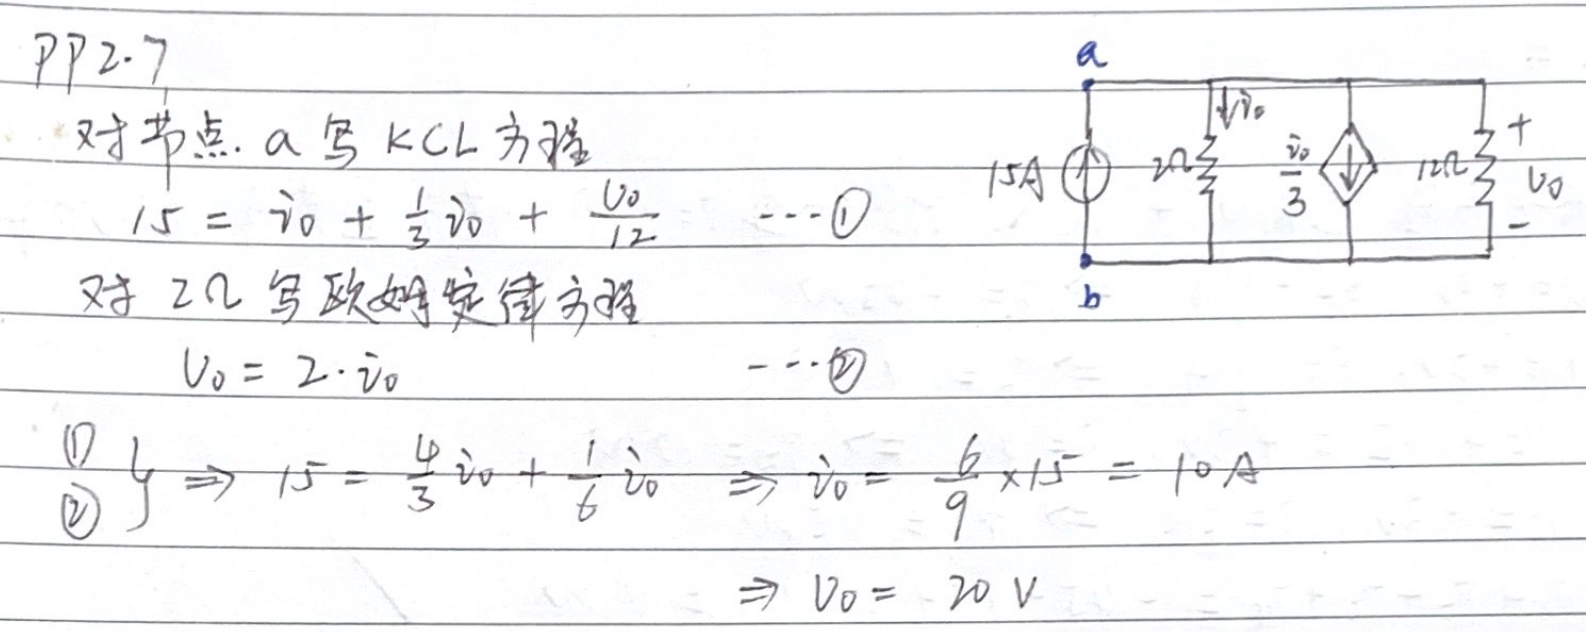 PP2.7
对节点.a写KCL方程
15 = i₀ + 1/3 i₀ + U₀/12 ---①
对2Ω写欧姆定律方程
U₀ = 2·i₀ ---②
①
② } ⇒ 15 = 4/3 i₀ + 1/6 i₀ ⇒ i₀ = 6/9 ×15 = 10A
⇒ U₀ = 20 V
a
↓i₀
15A 2Ω i₀/3 12Ω + U₀ -
b